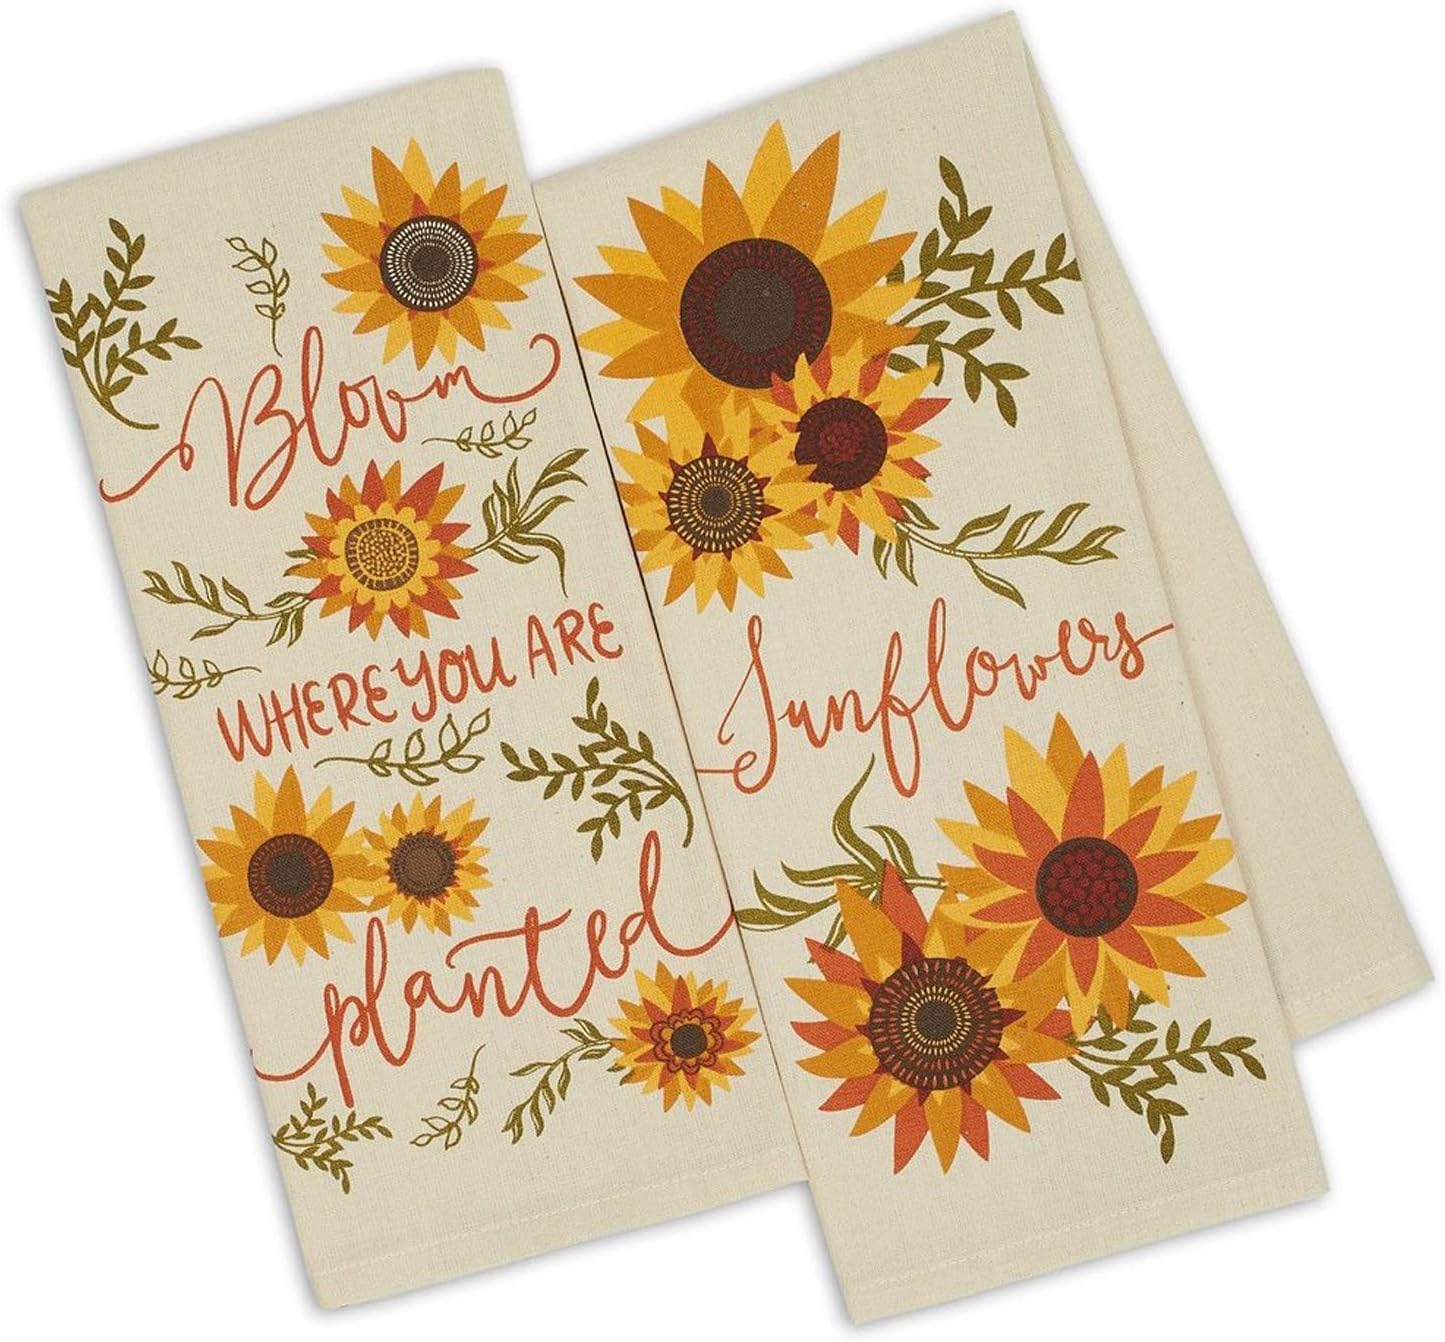 Bloom
WHERE YOU ARE
planted
Sunflowers